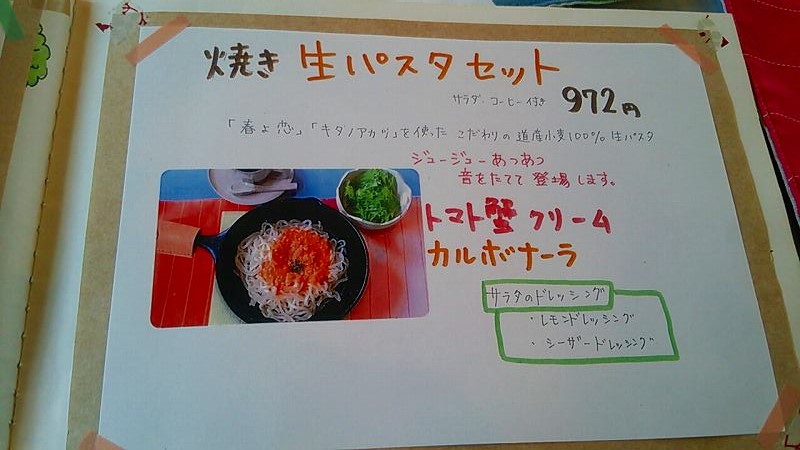 焼き 生パスタセット
サラダ・コーヒー付き 972円
「春よ恋」「キタノアカツ」を使った こだわりの道産小麦100% 生パスタ
ジュージューあつあつ
音をたてて登場します。
トマト蟹クリーム
カルボナーラ
サラダのドレッシング
・レモンドレッシング
・シーザードレッシング